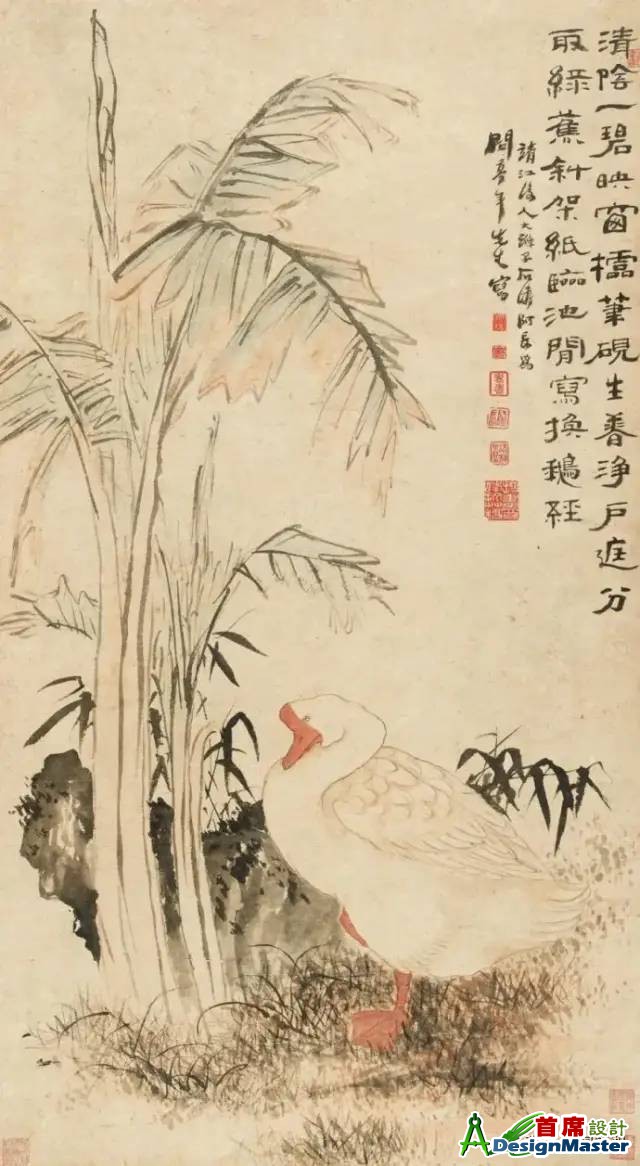 清陰一碧映窗櫺筆硯生香淨戶庭分
取綠蕉斜架紙臨池閒寫換鵝經
靖江後人大滌子石濤阿長為
閒亭年先生寫
首席設計
DesignMaster